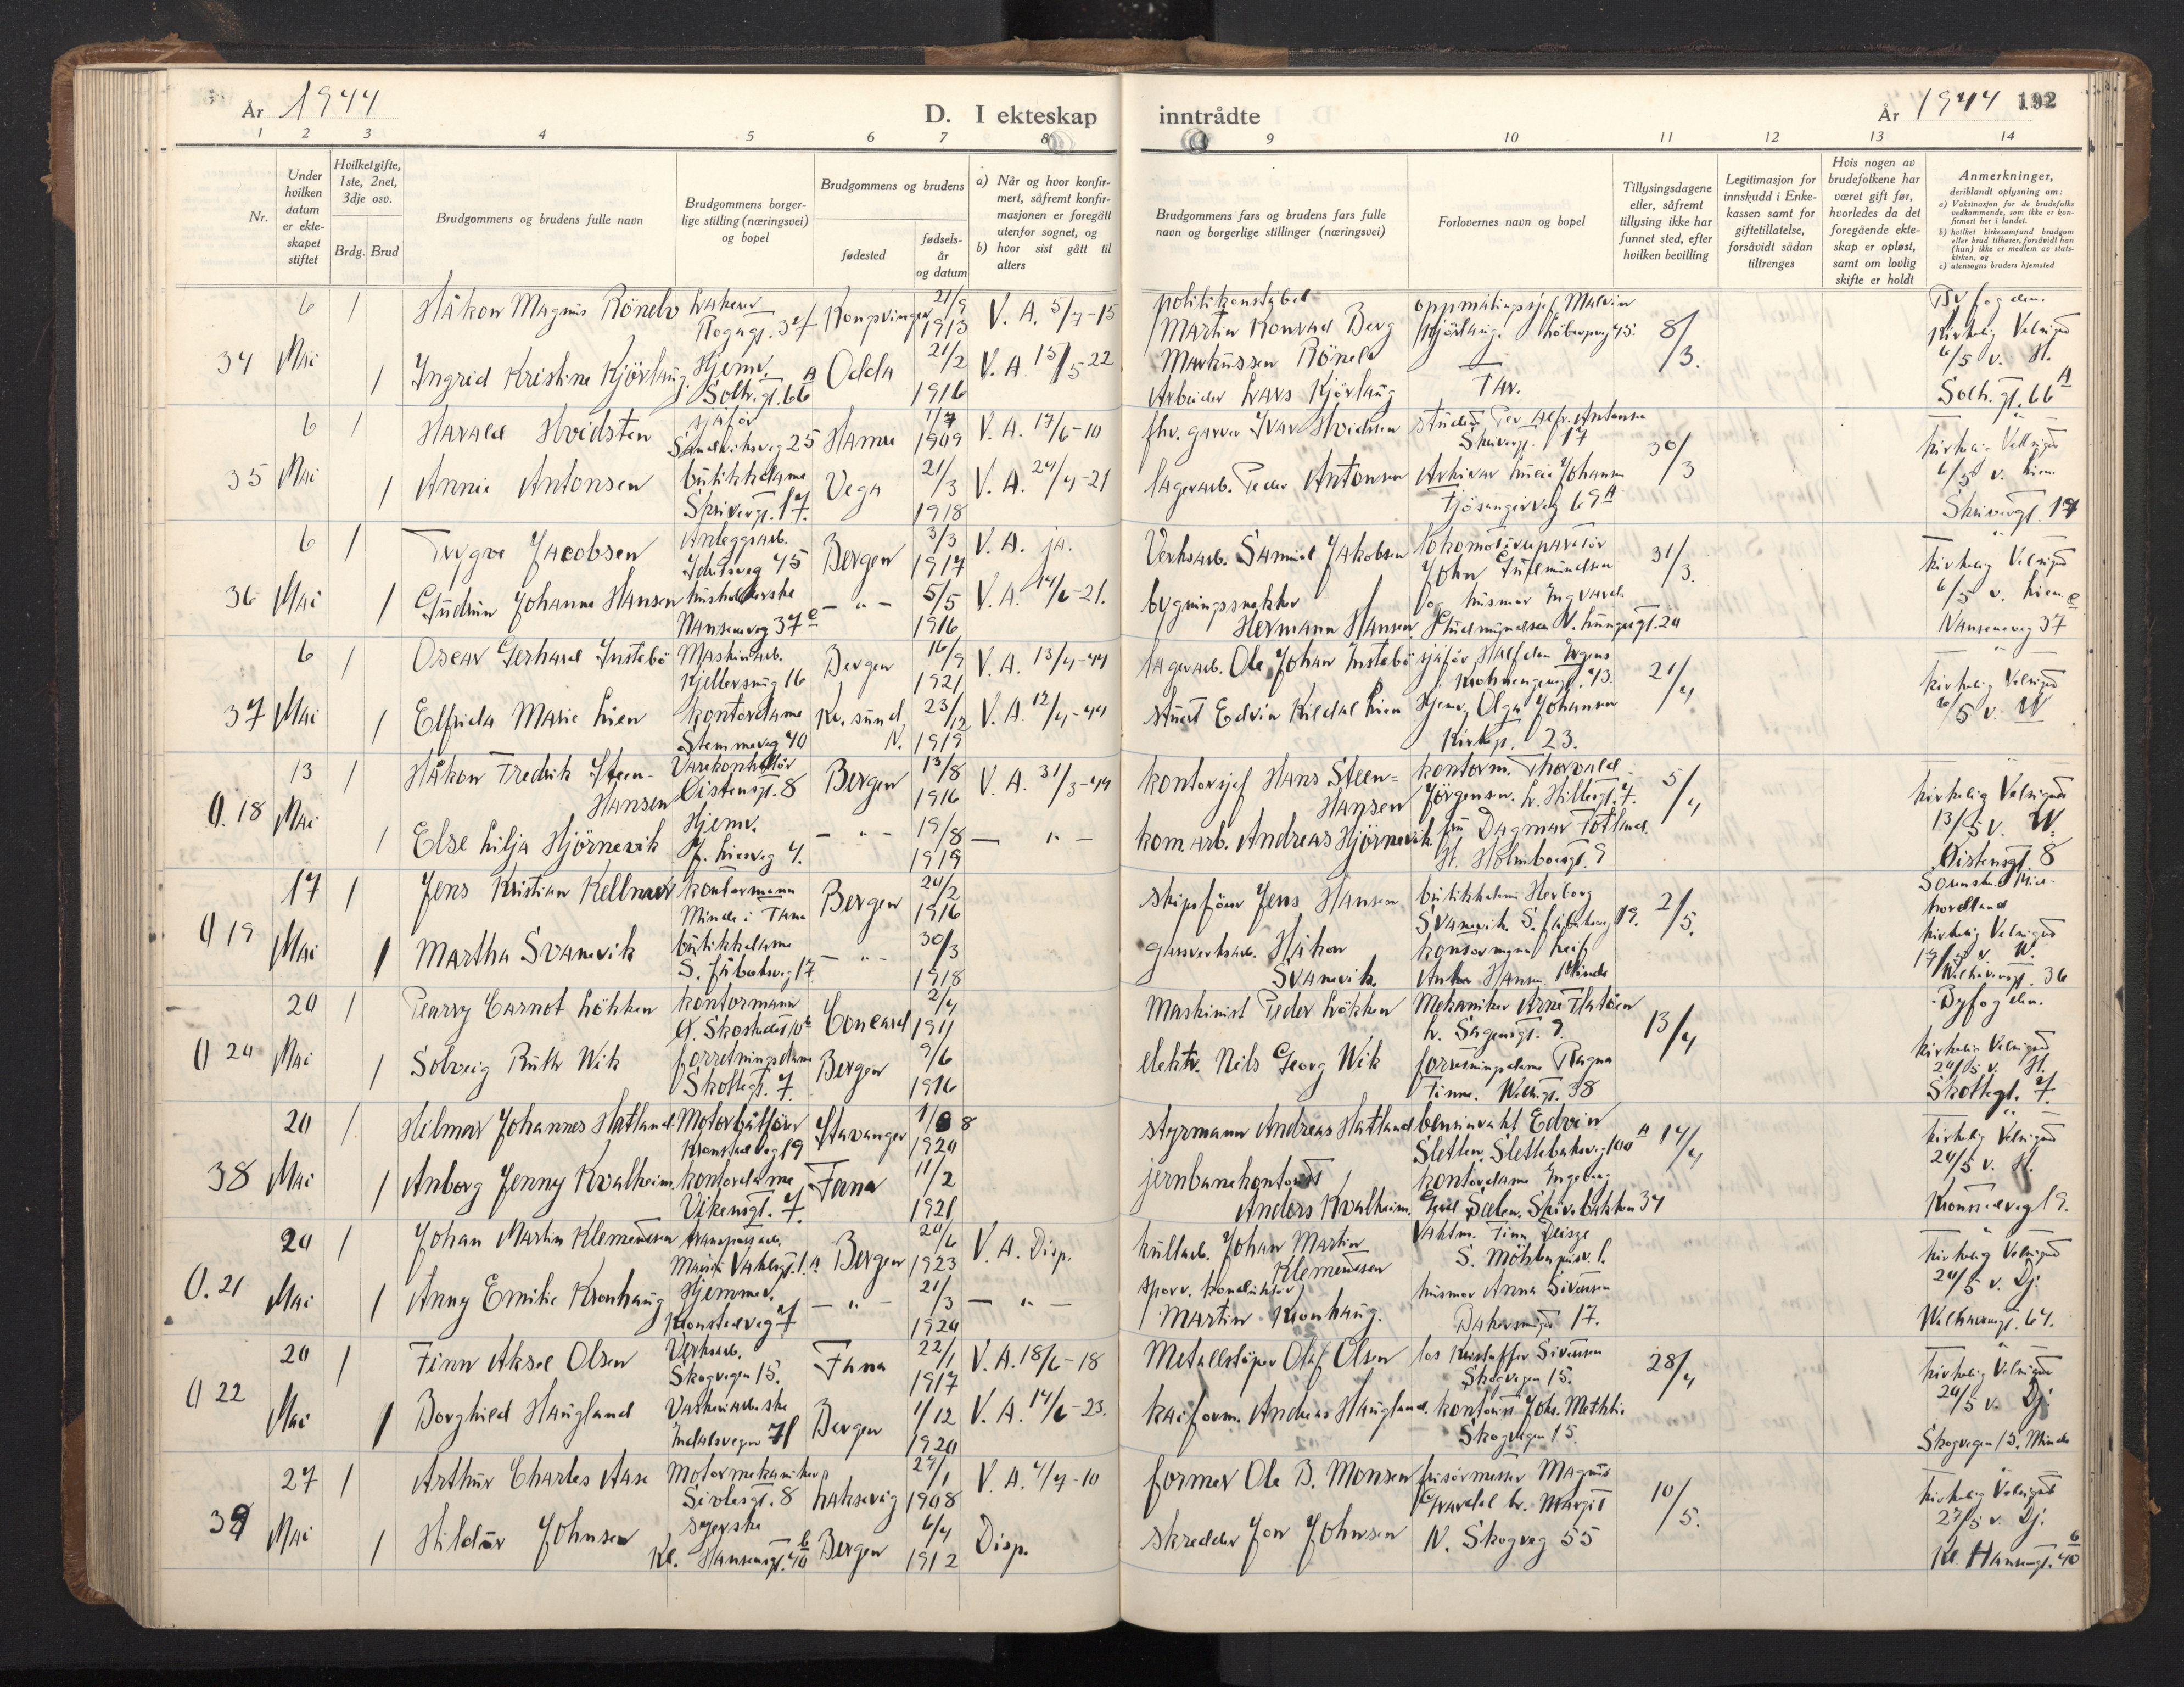 År 1944
D. I ekteskap inntrådte
År 1944 192
1 2 3 4 5 6 7 8 9 10 11 12 13 14
Nr.
Under hvilken datum er ekteskapet stiftet
Hvilket gifte, 1ste, 2net, 3dje osv.
Brdg. Brud
Brudgommens og brudens fulle navn
Brudgommens borgerlige stilling (næringsvei) og bopel
Brudgommens og brudens
fødested
fødselsår og datum
a) Når og hvor konfirmert, såfremt konfirmasjonen er foregått utenfor sognet, og
b) hvor sist gått til alters
Brudgommens fars og brudens fars fulle navn og borgerlige stillinger (næringsvei)
Forlovernes navn og bopel
Tillysingsdagene eller, såfremt tillysing ikke har funnet sted, efter hvilken bevilling
Legitimasjon for innskudd i Enkekassen samt for giftetillatelse, forsåvidt sådan tiltrenges
Hvis nogen av brudefolkene har været gift før, hvorledes da det foregående ekteskap er opløst, samt om lovlig skifte er holdt
Anmerkninger, deriblandt oplysning om:
a) Vaksinasjon for de brudefolks vedkommende, som ikke er konfirmert her i landet.
b) hvilket kirkesamfund brudgom eller brud tilhører, forsåvidt han (hun) ikke er medlem av statskirken, og
c) utensogns bruders hjemsted
34 6 Mai 1 Håkon Magnus Rönelv Kongsvinger 21/9 1913 V. A. 5/7-15
politikonstabel Martin Konrad Berg Markussen Rönelv
8/3.
1 Ingrid Kristine Kjörlaug Hjemv. Solh.gt. 66 A Odda 21/2 1916 V. A. 15/5-22
Arbeider Lars Kjörlaug
Kirkelig Velsignet 6/5 v. H. Solh. gt. 66 A
35 6 Mai 1 Harald Hvidsten sjåfør Sandviksveg 25 Hamre 1/7 1909 V. A. 17/6-10
fhv. garver Ivar Hvidsten student Per Alfr. Antonsen Skiverg. 17 30/3
1 Annie Antonsen butikkdame Skivergt. 17. Vega 21/3 1918 V. A. 24/4-21
lagerarb. Peder Antonsen Arkivar Johansen Fjösangerveg 69 A
Kirkelig Velsignet 6/5 v. Lien Skivergt. 17
36 6 Mai 1 Trygve Jacobsen Anleggsarb. 45 Bergen 3/3 1917 V. A. ja.
Verksarb. Samuel Jakobsen Lokomotivreparatör John Gudmundsen 31/3.
1 Gudrun Johanne Hansen husholderske Nansensveg 37 c - " - 5/5 1916 V. A. 14/6-21.
bygningssnekker Hermann Hansen og husmor Ingvarda Gudmundsen 20
Kirkelig Velsignet 6/5 v. Lien Nansensveg 37 c
37 6 Mai 1 Oscar Gerhard Instebö Maskinarb. Kjellersmug 16 Bergen 16/9 1921 V. A. 13/4-44
lagerarb. Ole Johan Instebö sjåför Halfdan 21/4
1 Elfrida Marie Lien kontordame Stemmeveg 40 Kr. sund N. 23/12 1919 V. A. 12/4-44
stuert Edvin Kildal Lien Hjemv. Olga Johansen Kirkegt. 23.
Kirkelig Velsignet 6/5 v. W
O. 18 13 Mai 1 Håkon Fredrik Steen-Hansen Varekontrollör Øistensgt. 8 Bergen 13/8 1916 V. A. 31/3-44
kontorsjef Hans Steen-Hansen kontorm. Thorvald Jörgensen. L. Hillesgt. 7. 5/4
1 Else Lilja Hjörnevik Hjemv. J. Liesveg 4. - " - 19/8 1919 - " -
kom. arb. Andreas Hjörnevik fru Dagmar Totland. H. Holmboesgt. 9
Kirkelig Velsignet 13/5 v. W. Øistensgt. 8
O 19 17 Mai 1 Jens Kristian Kellmer kontormann Minde i Fana Bergen 20/2 1916
skipsförer Jens Hansen butikkdame Herborg Svanevik 19. 2/5.
1 Martha Svanevik butikkdame - " - 30/3 1918
gassverksarb. Håkon Svanevik. kontormann Leif Hansen Minde
Sorenskr. Midhordland Kirkelig Velsignet v. W. 36
O 20 20 Mai 1 Pearry Carnot Lökken kontormann Concard 2/4 1911
Maskinist Peder Lökken Mekaniker Arne Flatöen L. Sagensgt. 9. 13/4
1 Solveig Ruth Wik forretningsdame Skottegt. 7. Bergen 9/6 1916
elektr. Nils Georg Wik forretningsdame Ragna Finne. Welhgt. 38
Byfogden. Kirkelig Velsignet 20/5 v. H. Skottegt. 7.
38 20 Mai 1 Hilmar Johannes Hatland Motorbåtförer Kronstadveg 19 Stavanger 1/8 1920
styrmann Andreas Hatland bensinvakt Edvin Sletten. Slettebaksveg 100 A 14/4
1 Anborg Jenny Kvalheim. kontordame Vikensgt. 7. Fana 11/2 1921
jernbanekontorist Anders Kvalheim. kontordame Ingeborg Sælen. Skivebakken 34
Kirkelig Velsignet 20/5 v. H. Kronstadveg 19.
O. 21 20 Mai 1 Johan Martin Klementsen transportarb. Bergen 20/6 1923 V. A. Disp.
kullarb. Johan Martin Klementsen Vaktm. Finn
1 Anny Emilie Kronhaug Hjemmev. Kronstadveg 7 - " - 21/3 1920 - " -
sporv. konduktör Martin Kronhaug. husmor Anna Sivertsen Bakersmug 17.
Kirkelig Velsignet 20/5 v. Dj. Welhavensgt. 67.
O 22 20 Mai 1 Finn Aksel Olsen Verksarb. Skogvegen 15. Fana 22/1 1917 V. A. 18/6-18
Metallstöper Olaf Olsen los Kristoffer Sivertsen Skogvegen 15. 28/4
1 Borghild Haugland Vaskeriarb.ske Indalsvegen 71 Bergen 1/12 1920 V. A. 14/6-23.
kaiform. Andreas Haugland. kontorist Johs. Methli Skogvegen 15.
Kirkelig Velsignet 20/5 v. Dj. Skogvegen 15. Minde
39 27 Mai 1 Arthur Charles Aase Motormekaniker Sivlesgt. 8 Laksevåg 27/1 1908 V. A. 4/4-10
former Ole B. Monsen frisörmester Magnus br. Margit N. Skogveg 55 10/5.
1 Hildur Johnsen syerske Kl. Hansensgt. 40 b Bergen 6/4 1912 Disp.
skredder Jon Johnsen
Kirkelig Velsignet 27/5 v. Dj. Kl. Hansensgt. 40 b